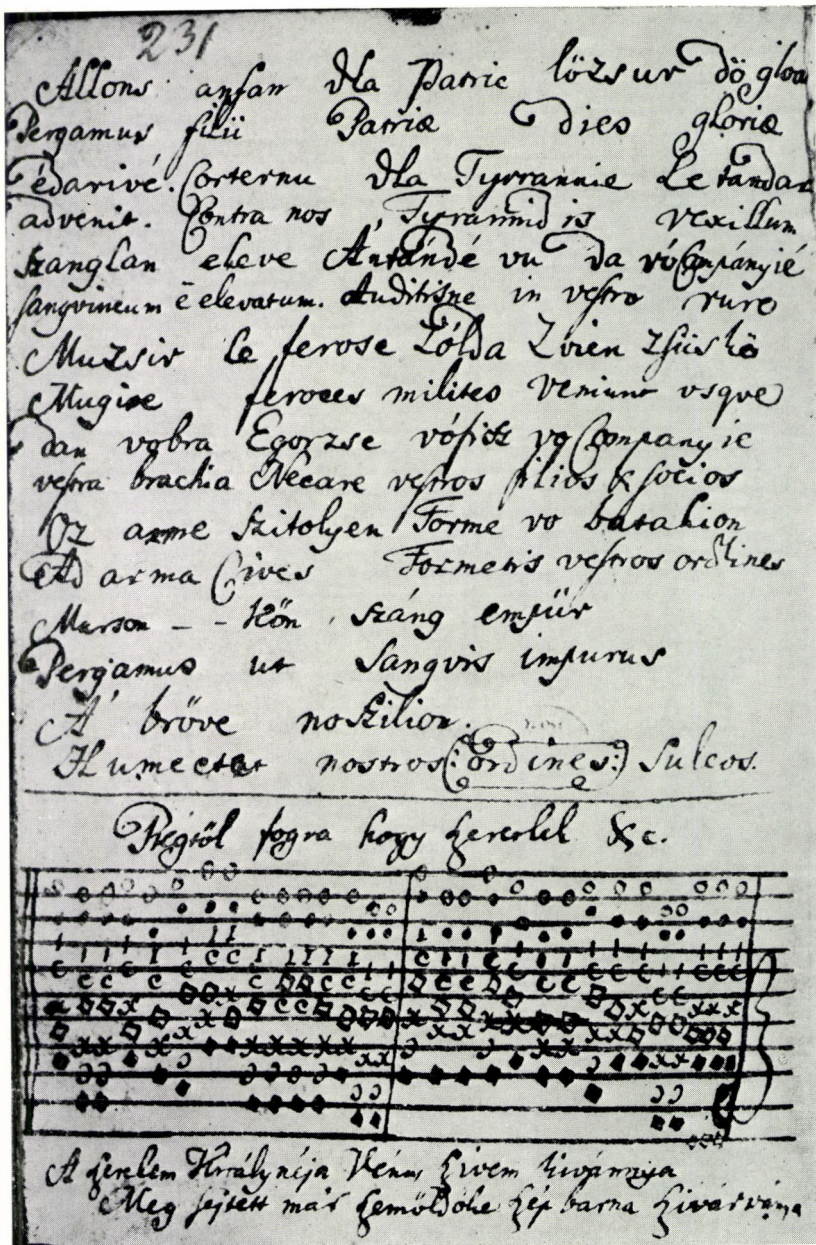 231
Allons anfan dla Patrie lözsur dö gloa
Pergamus filii Patriæ dies gloriæ
édarivé. Corternu dla Tyrrannie Le tandar
advenit. Contra nos Tyrannidis vexillum
szanglan eleve Antándé vu da vó Cmpányié
sangvineum ē elevatum. Auditisne in vestro rure
Muzsir le ferose Zólda Zvien zsüskö
Mugire feroces milites veniunt usque
dan vobra Egorzse vófisz vo Companyie
vestra brachia Necare vestros filios & socios
Oz arme szitolyen Forme vo batalion
Ad arma Cives Formetis vestros ordines
Marson - - kön száng empür
Pergamus ut Sangvis impurus
A' bröve no szilion.
Humectet nostros (: ordines :) Sulcos.
Régtöl fogva hogy szeretlek &c.
A szerelem Királynéja Vénus szivem kivánnya
Meg sejtett már szemöldöke szép barna szivárványa